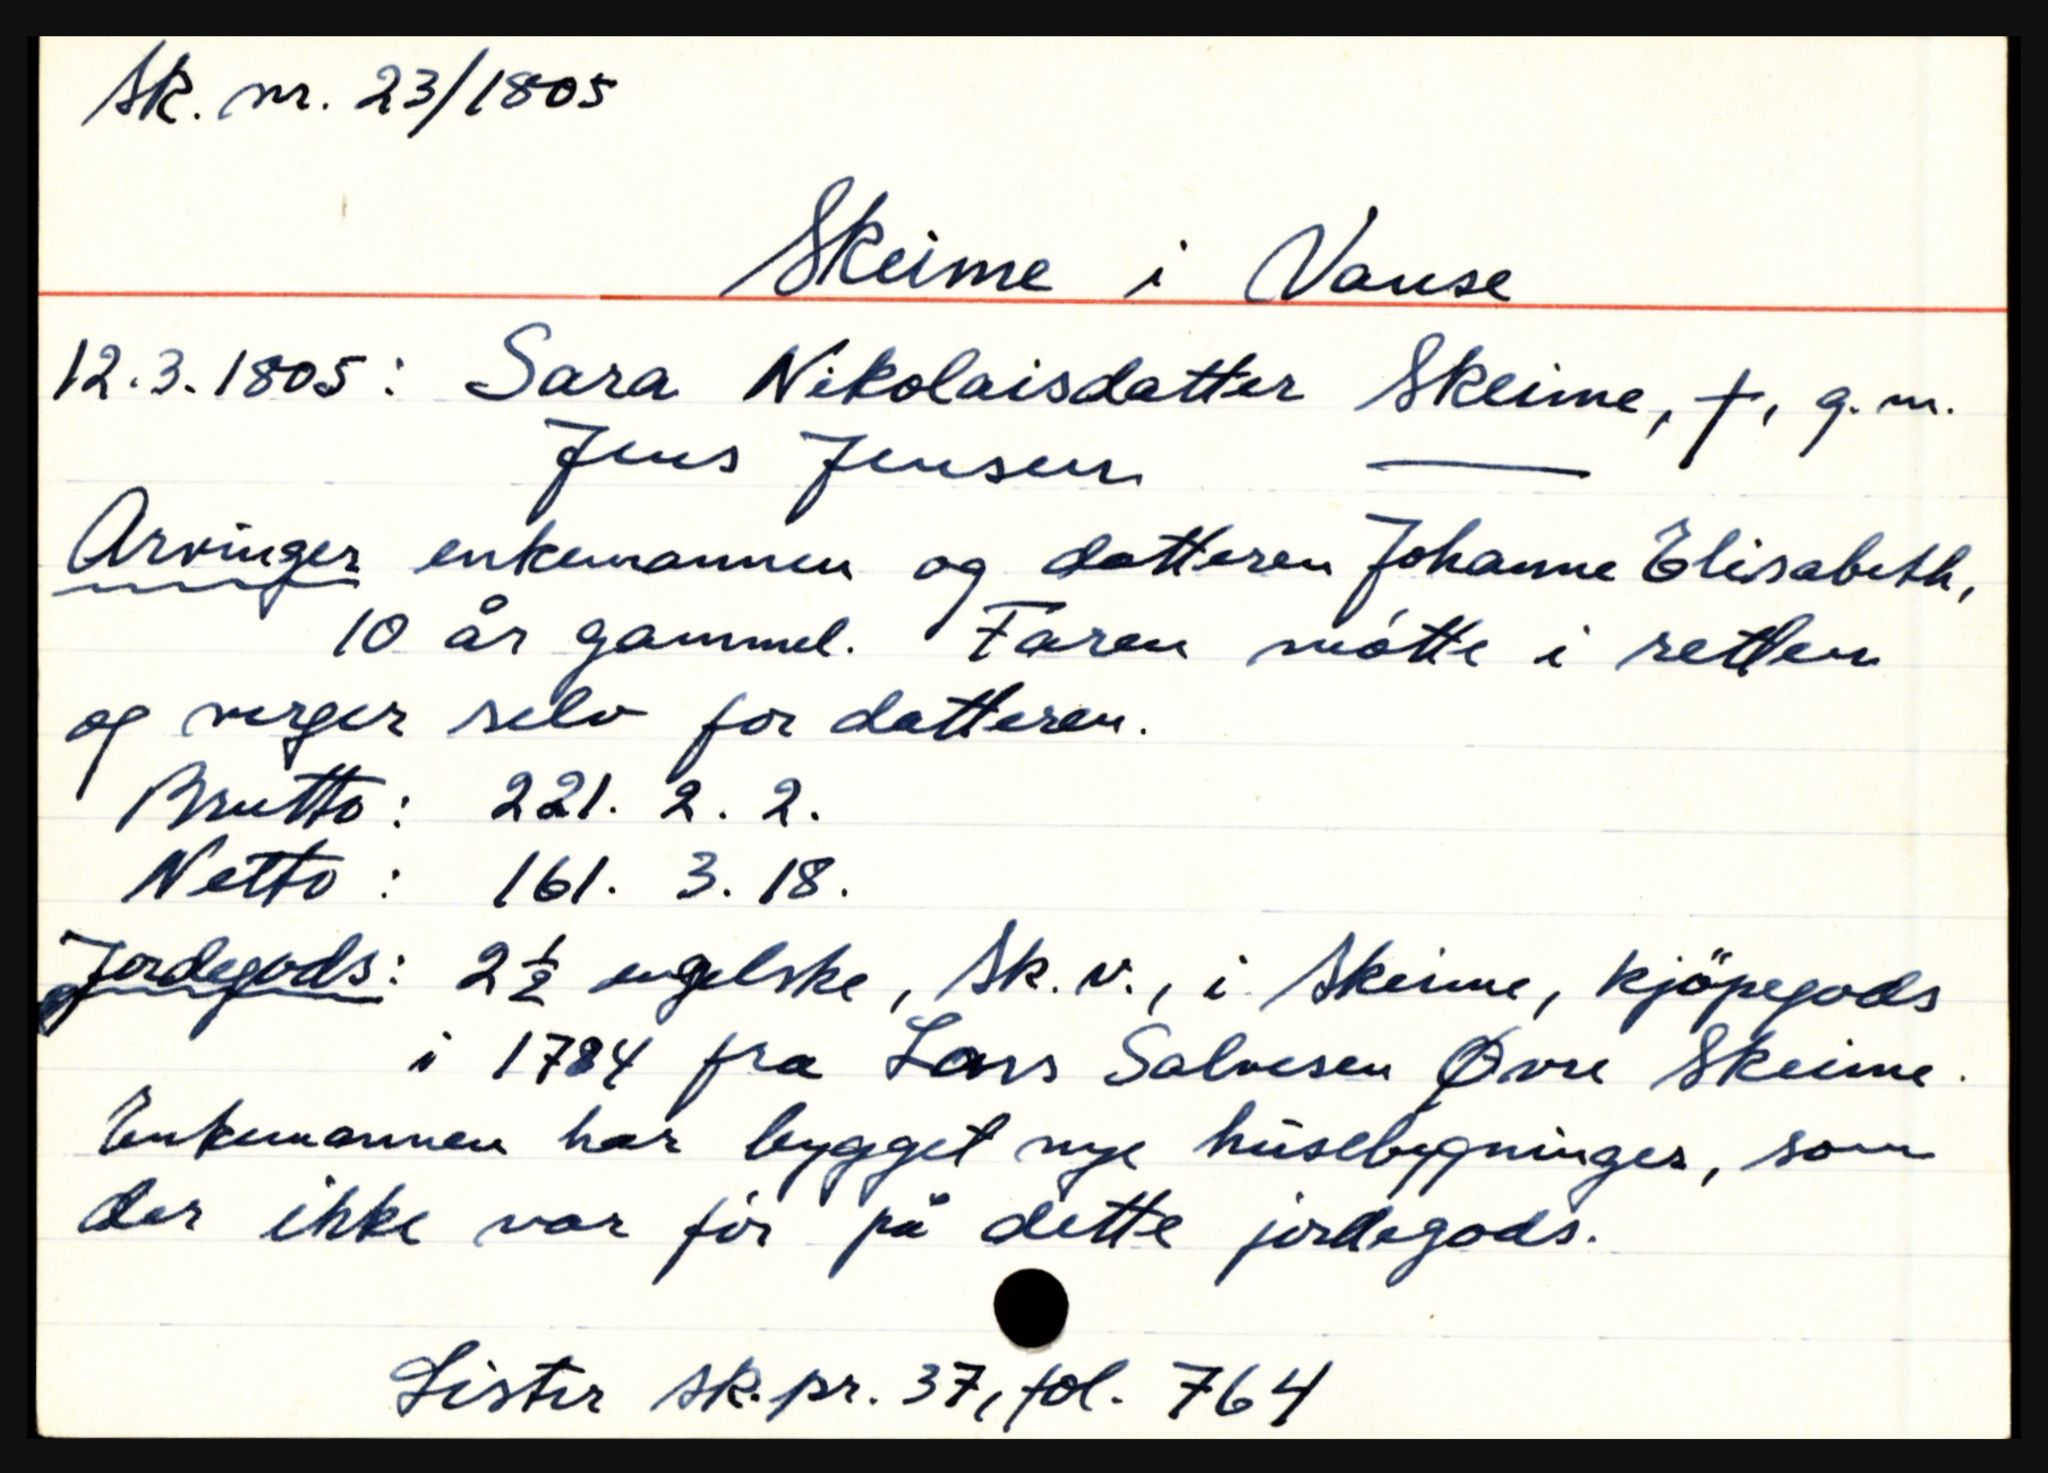 Sk. nr. 23/1805
Skeime i Vanse
12.3.1805: Sara Nikolaisdatter Skeime, †, g.m.
Jens Jensen —
Arvinger enkemannen og datteren Johanne Elisabeth,
10 år gammel. Faren møtte i retten
og verger selv for datteren.
Brutto: 221. 2. 2.
Netto: 161. 3. 18.
Jordegods: 2 ½ engelske, Sk.v., i Skeime, kjöpegods
i 1784 fra Lars Salvesen Øvre Skeime.
Enkemannen har bygget nye húsebygninger, som
der ikke var för på dette jordegods.
Lister sk.pr. 37, fol. 764